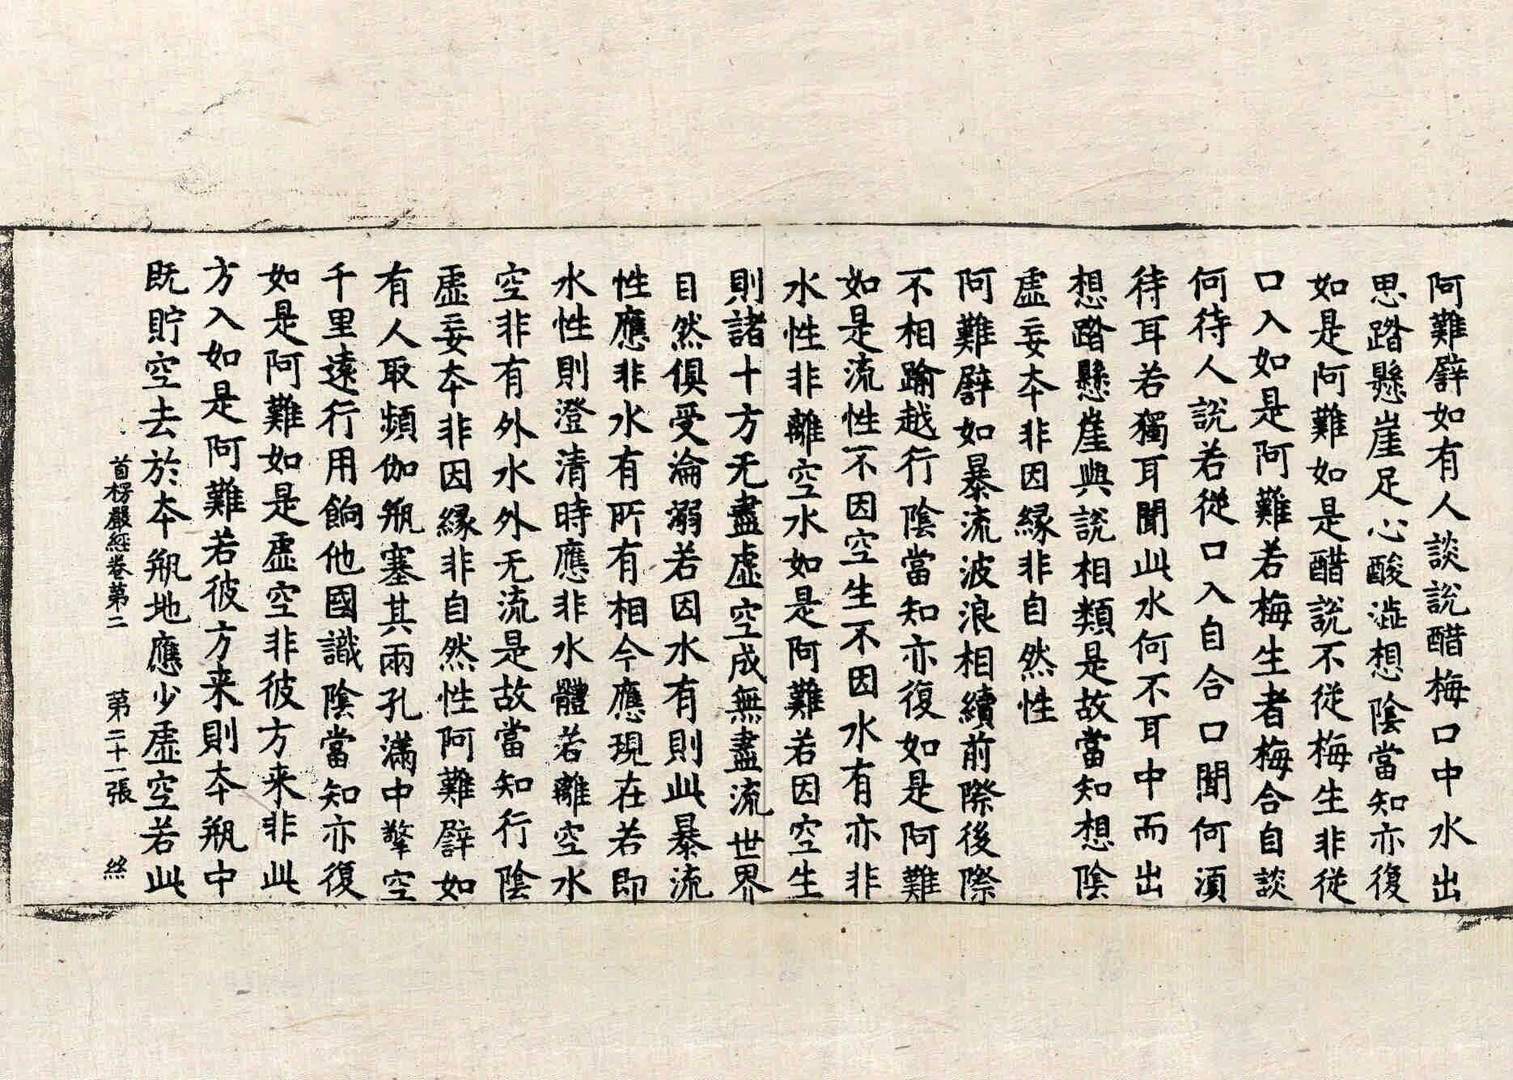 阿難譬如有人談說醋梅口中水出
思蹋懸崖足心酸澁想陰當知亦復
如是阿難如是醋說不從梅生非從
口入如是阿難若梅生者梅合自談
何待人說若從口入自合口聞何湏
待耳若獨耳聞此水何不耳中而出
想蹋懸崖與說相類是故當知想陰
虛妄本非因緣非自然性
阿難譬如暴流波浪相續前際後際
不相踰越行陰當知亦復如是阿難
如是流性不因空生不因水有亦非
水性非離空水如是阿難若因空生
則諸十方无盡虛空成無盡流世界
自然俱受淪溺若因水有則此暴流
性應非水有所有相今應現在若即
水性則澄清時應非水體若離空水
空非有外水外无流是故當知行陰
虛妄本非因緣非自然性阿難譬如
有人取頻伽瓶塞其兩孔滿中擎空
千里遠行用餉他國識陰當知亦復
如是阿難如是虛空非彼方来非此
方入如是阿難若彼方来則本瓶中
既貯空去於本瓶地應少虛空若此
首楞嚴經卷第二 第二十一張 絲